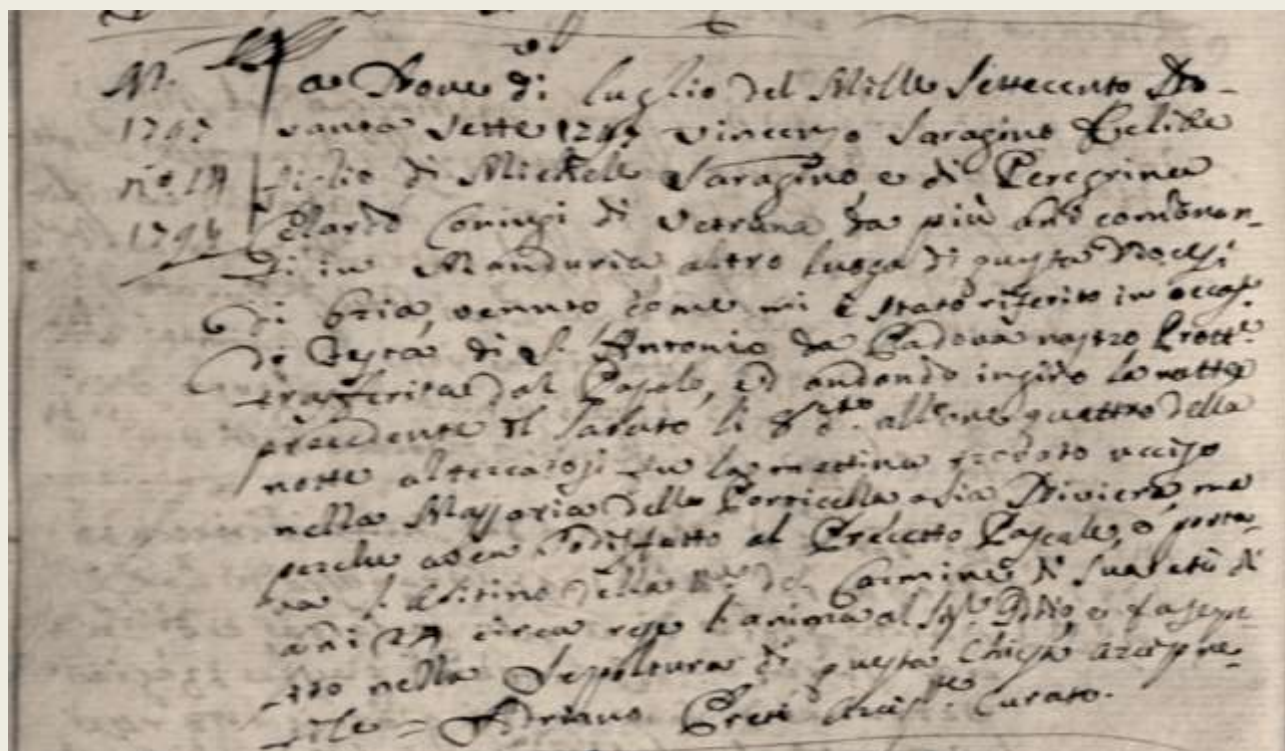 A nove di luglio del Mille Settecento No-
1797 vanta sette 1797 Vincenzo Saragino Celibe
figlio di Michele Saragino e di Peregrina
conjugi di Vetrana da più anni commoran-
ti in Manduria altro luogo di questa Diocesi
di Oria, venuto come mi è stato riferito in occas.
Festa di S. Antonio da Padova nostro Prott.e
trasferita dal Casale, ed andando in giro la notte
precedente il Sabato li 8 d.to all'ore quattro della
notte la mattina trovato ucciso
nella Massaria della Torricella o sia Riviera ma
perche avea sodisfatto al Precetto Pascale, e porta-
va l'Abitino della del Carmine di sua età di
anni circa rese l'anima al Sig.e Iddio, e
nella Sepoltura di questa Chiesa arcipre-
tile = Adriano Preti Arcip.te Curato.